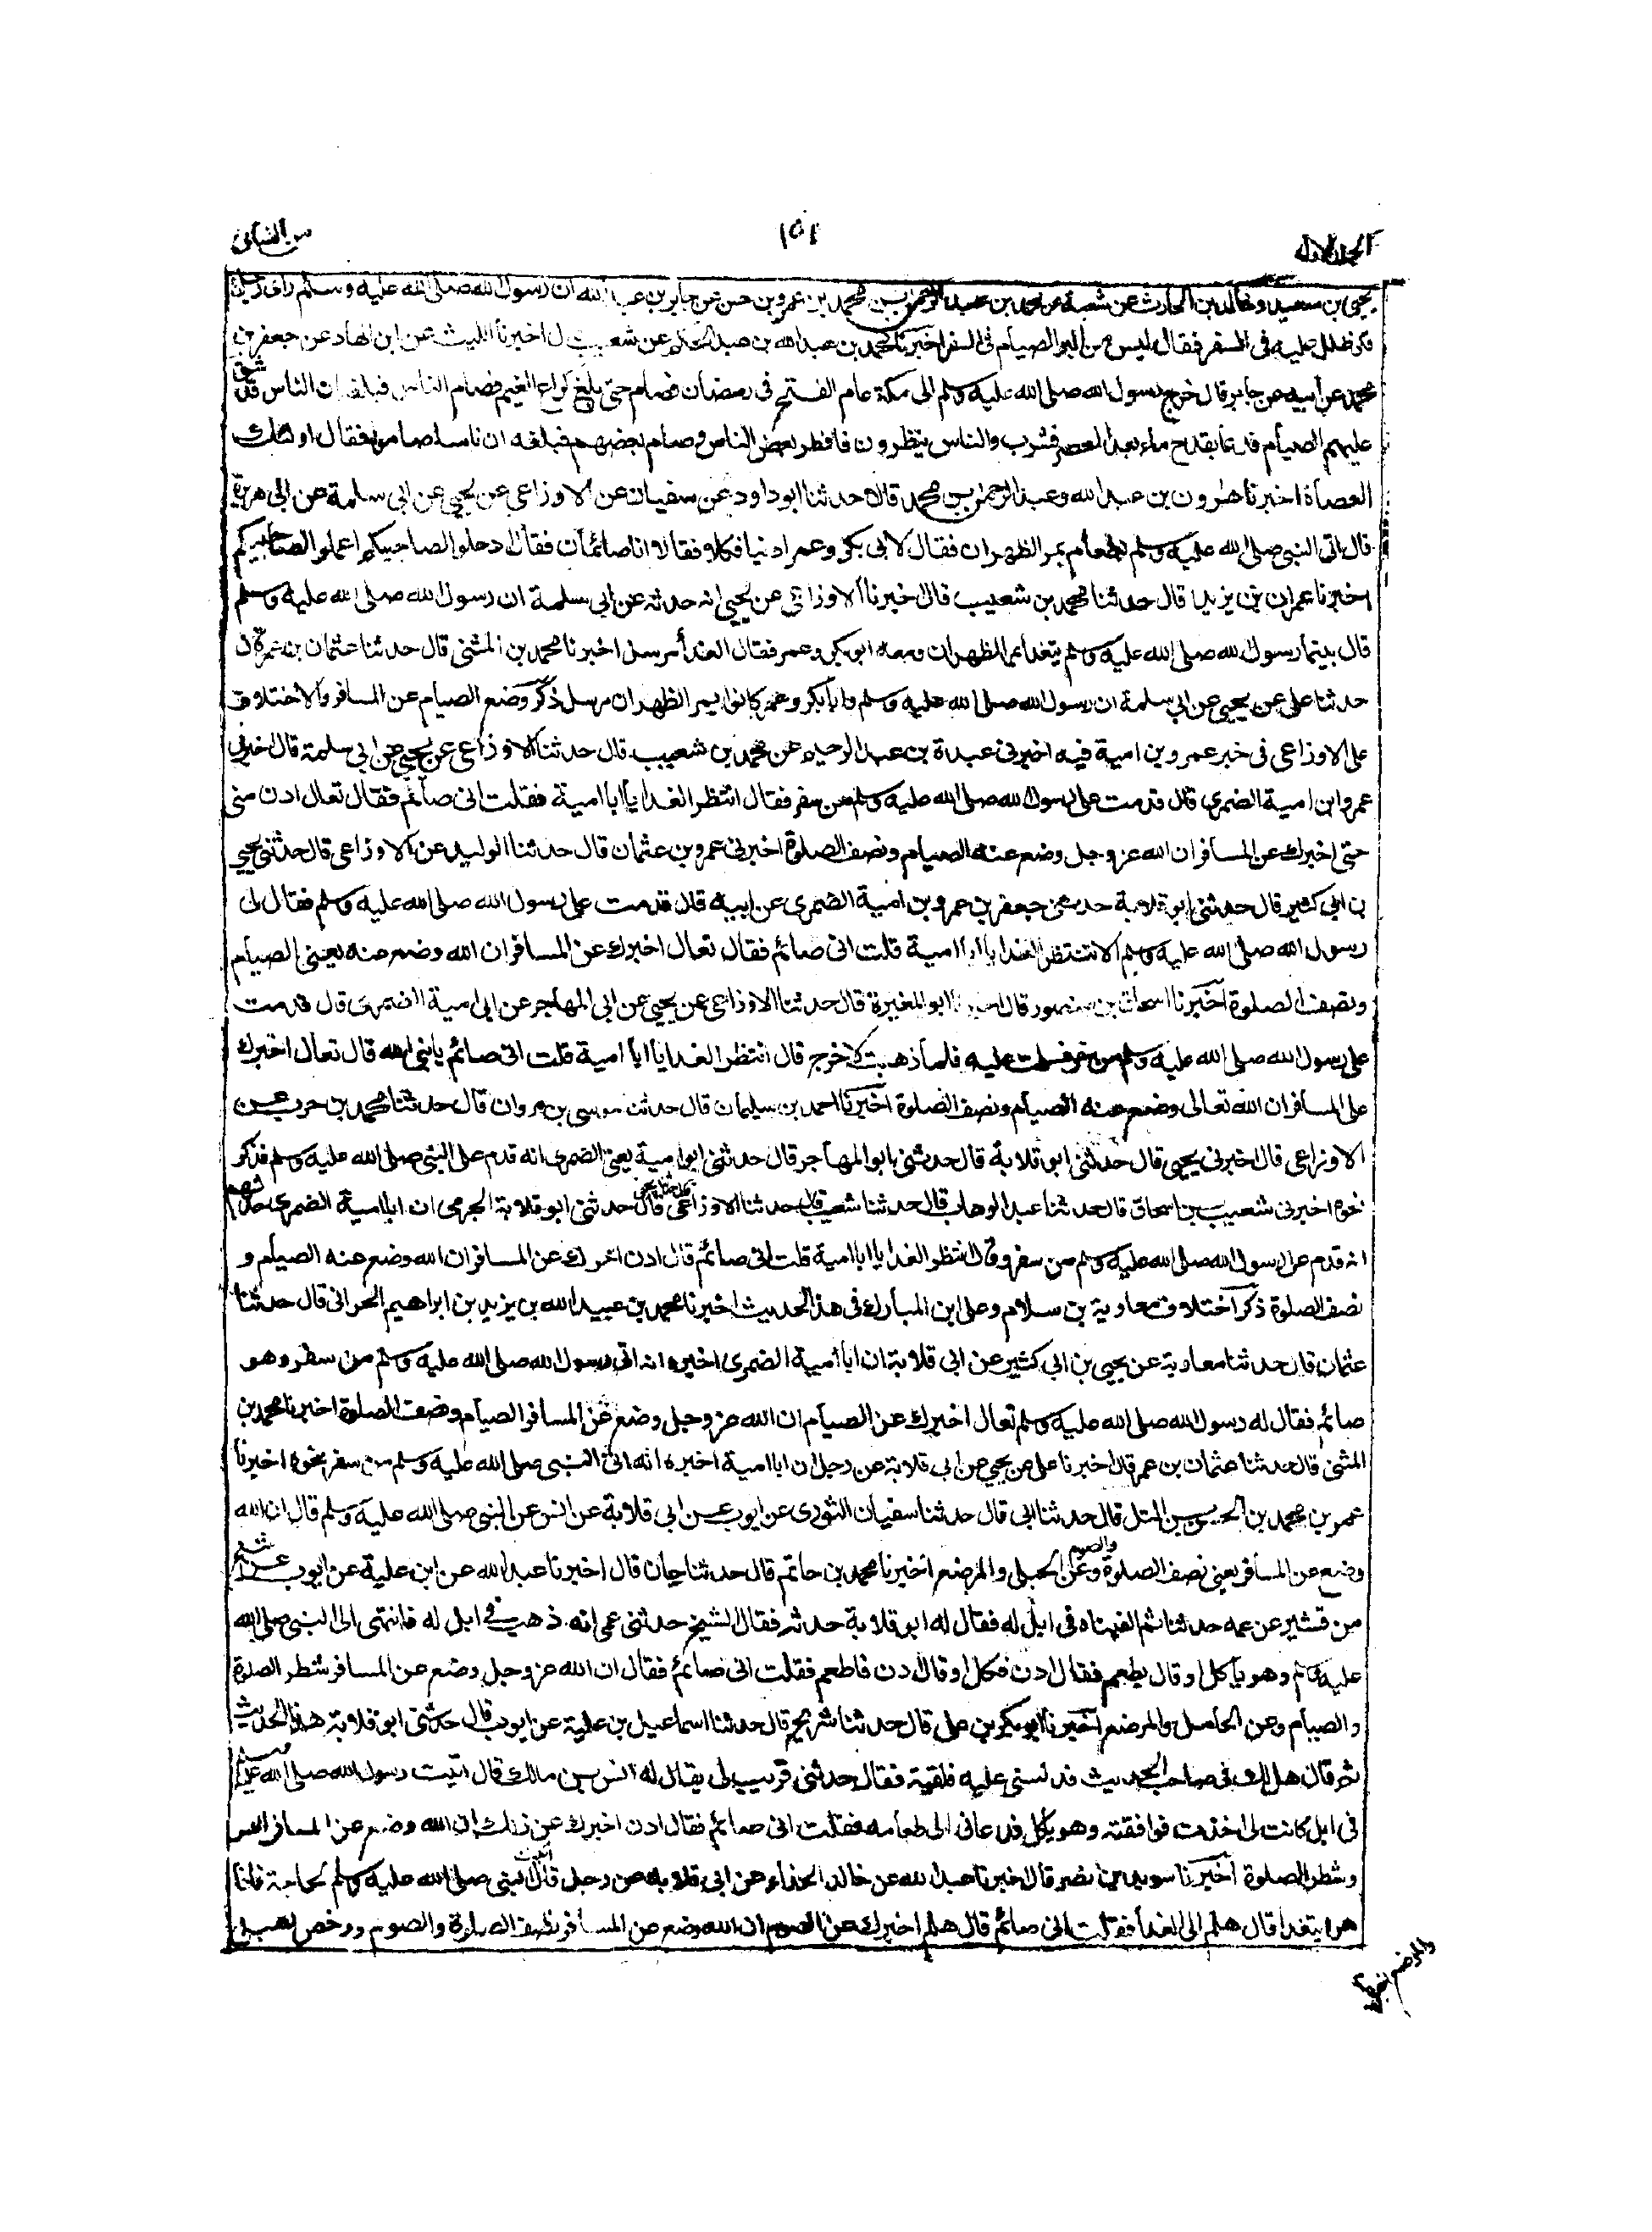 المجلد الاول
١٥١
من النسائى
يحيى بن سعيد وخالد بن الحارث عن شعبة عن محمد بن عبد الرحمن عن محمد بن عمرو بن حسن عن جابر بن عبد الله ان رسول الله صلى الله عليه وسلم راى رجلا
قد ظلل عليه فى السفر فقال ليس من البر الصيام فى السفر اخبرنا محمد بن عبد الله بن عبد الحكم عن شعيب ل اخبرنا الليث عن ابن الهاد عن جعفر بن
محمد عن ابيه عن جابر قال خرج رسول الله صلى الله عليه وسلم الى مكة عام الفتح فى رمضان فصام حتى بلغ كراع الغميم فصام الناس فبلغه ان الناس قد شق
عليهم الصيام فدعا بقدح ماء بعد العصر فشرب والناس ينظرون فافطر بعض الناس وصام بعضهم فبلغه ان ناسا صاموا فقال اولئك
العصاة اخبرنا هارون بن عبد الله وعبد الرحمن بن محمد قالا حدثنا ابو داود عن سفيان عن الاوزاعى عن يحيى عن ابى سلمة عن ابى هريرة
قال اتى النبى صلى الله عليه وسلم بطعام بمر الظهران فقال لابى بكر وعمر ادنيا فكلا فقالا انا صائمان فقال ادحلوا لصاحبيكم اعملوا لصاحبيكم
اخبرنا عمران بن يزيد قال حدثنا محمد بن شعيب قال اخبرنا الاوزاعى عن يحيى انه حدثه عن ابى سلمة ان رسول الله صلى الله عليه وسلم
قال بينما رسول الله صلى الله عليه وسلم يتغدا بمر الظهران ومعه ابو بكر وعمر فقال الغدأ مرسل اخبرنا محمد بن المثنى قال حدثنا عثمان بن عمر قال
حدثنا على عن يحيى عن ابى سلمة ان رسول الله صلى الله عليه وسلم وابا بكر وعمر كانوا بمر الظهران مرسل ذكر وضع الصيام عن المسافر والاختلاف
على الاوزاعى فى خبر عمرو بن امية فيه اخبرنى عبدة بن عبد الرحيم عن محمد بن شعيب قال حدثنا الاوزاعى عن يحيى عن ابى سلمة قال اخبرنى
عمرو ابن امية الضمرى قال قدمت على رسول الله صلى الله عليه وسلم من سفر فقال انتظر الغدا يا ابا امية فقلت انى صائم فقال تعال ادن منى
حتى اخبرك عن المسافر ان الله عز وجل وضع عنه الصيام ونصف الصلوة اخبرنى عمرو بن عثمان قال حدثنا الوليد عن الاوزاعى قال حدثنى يحيى
بن ابى كثير قال حدثنى ابو قلابة حدثنى جعفر بن عمرو بن امية الضمرى عن ابيه قال قدمت على رسول الله صلى الله عليه وسلم فقال لى
رسول الله صلى الله عليه وسلم الا تنتظر الغدا يا ابا امية قلت انى صائم فقال تعال اخبرك عن المسافر ان الله وضع عنه يعنى الصيام
ونصف الصلوة اخبرنا اسحاق بن منصور قال اخبرنا ابو المغيرة قال حدثنا الاوزاعى عن يحيى عن ابى المهاجر عن ابى امية الضمرى قال قدمت
على رسول الله صلى الله عليه وسلم من سفر فسلمت عليه فلما ذهبت لاخرج قال انتظر الغدا يا ابا امية قلت انى صائم يا نبى الله قال تعال اخبرك
على المسافر ان الله تعالى وضع عنه الصيام ونصف الصلوة اخبرنا احمد بن سليمان قال حدثنا موسى بن مروان قال حدثنا محمد بن حرب عن
الاوزاعى قال اخبرنى يحيى قال حدثنى ابو قلابة قال حدثنى ابو المهاجر قال حدثنى ابو امية يعنى الضمرى انه قدم على النبى صلى الله عليه وسلم فذكر
نحوه اخبرنى شعيب بن اسحاق قال حدثنا عبد الوهاب قال حدثنا شعيب قال حدثنا الاوزاعى قال حدثنا يحيى قال حدثنى ابو قلابة الجرمى ان ابا امية الضمرى حدثهم
انه قدم على رسول الله صلى الله عليه وسلم من سفر وقال انتظر الغدا يا ابا امية قلت انى صائم قال ادن اخبرك عن المسافر ان الله وضع عنه الصيام و
نصف الصلوة ذكر اختلاف معاوية بن سلام وعلى ابن المبارك فى هذا الحديث اخبرنا محمد بن عبيد الله بن يزيد بن ابراهيم الحرانى قال حدثنا
عثمان قال حدثنا معاوية عن يحيى بن ابى كثير عن ابى قلابة ان ابا امية الضمرى اخبره انه اتى رسول الله صلى الله عليه وسلم من سفر وهو
صائم فقال له رسول الله صلى الله عليه وسلم تعال اخبرك عن الصيام ان الله عز وجل وضع عن المسافر الصيام ونصف الصلوة اخبرنا محمد بن
المثنى قال حدثنا عثمان بن عمر قال اخبرنا على عن يحيى عن ابى قلابة عن رجل ان ابا امية اخبره انه اتى النبى صلى الله عليه وسلم من سفر نحوه اخبرنا
عمر بن محمد بن الحسن بن التل قال حدثنا ابى قال حدثنا سفيان الثورى عن ايوب عن ابى قلابة عن انس عن النبى صلى الله عليه وسلم قال ان الله
وضع عن المسافر يعنى نصف الصلوة والصوم وعن الحبلى والمرضع اخبرنا محمد بن حاتم قال حدثنا حبان قال اخبرنا عبد الله عن ابن علية عن ايوب عن شيخ
من قشير عن عمه حدثنا ثم الفيناه فى ابل له فقال له ابو قلابة حدثه فقال الشيخ حدثنى عمى انه ذهب فى ابل له فانتهى الى النبى صلى الله
عليه وسلم وهو ياكل او قال يطعم فقال ادن فكل او قال ادن فاطعم فقلت انى صائم فقال ان الله عز وجل وضع عن المسافر شطر الصلوة
والصيام وعن الحامل والمرضع اخبرنا ابو بكر بن على قال حدثنا شريح قال حدثنا اسماعيل بن علية عن ايوب قال حدثنى ابو قلابة هذا الحديث
ثم قال هل لك فى صاحب الحديث فدلنى عليه فلقيته فقال حدثنى قريب لى يقال له انس بن مالك قال اتيت رسول الله صلى الله عليه وسلم
فى ابل كانت لى اخذت فوافقته وهو ياكل فدعانى الى طعامه فقلت انى صائم فقال ادن اخبرك عن ذلك ان الله وضع عن المسافر الصوم
وشطر الصلوة اخبرنا سويد بن نصر قال اخبرنا عبد الله عن خالد الحذاء عن ابى قلابة عن رجل قال اتيت النبى صلى الله عليه وسلم لحاجة فاذا
هو يتغدا قال هلم الى الغدأ فقلت انى صائم قال هلم اخبرك عن الصوم ان الله وضع عن المسافر نصف الصلوة والصوم ورخص للحبلى
والمرضع